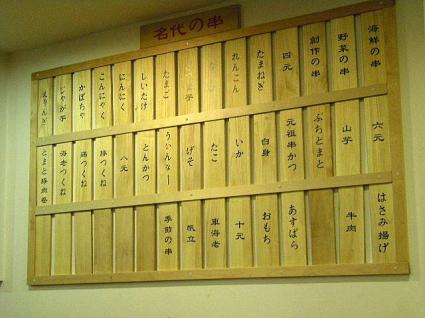 名代の串
海鮮の串
野菜の串
創作の串
四元
たまねぎ
れんこん
たまご
しいたけ
にんにく
こんにゃく
かぼちゃ
じゃが芋
えりんぎ
六元
山芋
ぷちとまと
元祖串かつ
白身
いか
たこ
げそ
うぃんなー
とんかつ
八元
豚つくね
鶏つくね
海老つくね
とまと豚肉巻
はさみ揚げ
牛肉
あすぱら
おもち
十元
車海老
帆立
季節の串